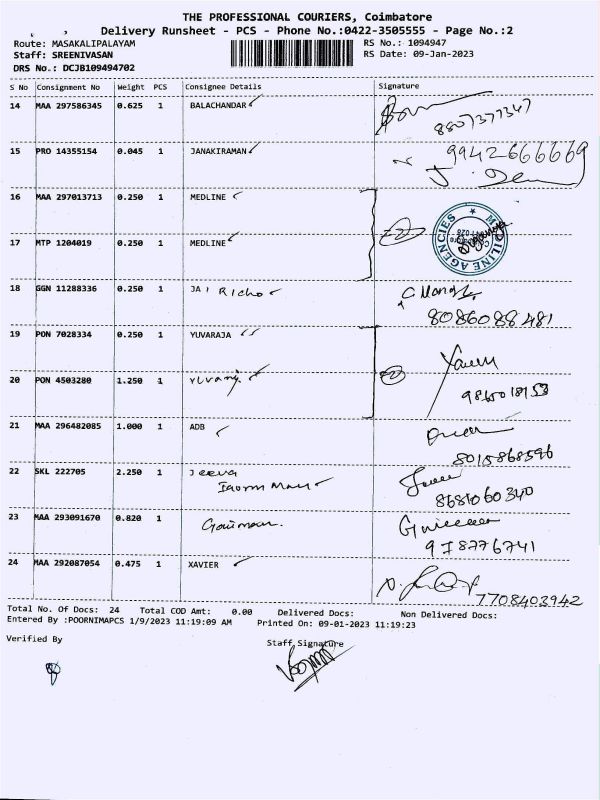 THE PROFESSIONAL COURIERS, Coimbatore
Delivery Runsheet - PCS - Phone No.:0422-3505555 - Page No.:2
Route: MASAKALIPALAYAM
RS No.: 1094947
Staff: SREENIVASAN
RS Date: 09-Jan-2023
DRS No.: DCJB109494702
S No Consignment No Weight PCS Consignee Details Signature
14 MAA 297586345 0.625 1 BALACHANDAR
8807377347
15 PRO 14355154 0.045 1 JANAKIRAMAN 9942666669
16 MAA 297013713 0.250 1 MEDLINE
MEDILINE AGENCIES
17 MTP 1204019 0.250 1 MEDLINE
18 GGN 11288336 0.250 1 JAI Richo
8086088481
19 PON 7028334 0.250 1 YUVARAJA
20 PON 4503280 1.250 1 Yuvaraj
21 MAA 296482085 1.000 1 ADB
8015868596
22 SKL 222705 2.250 1 Jeeva
8681060340
23 MAA 293091670 0.820 1
978776741
24 MAA 292087054 0.475 1 XAVIER
7708403942
Total No. Of Docs: 24 Total COD Amt: 0.00 Delivered Docs: Non Delivered Docs:
Entered By :POORNIMAPCS 1/9/2023 11:19:09 AM Printed On: 09-01-2023 11:19:23
Verified By Staff Signature